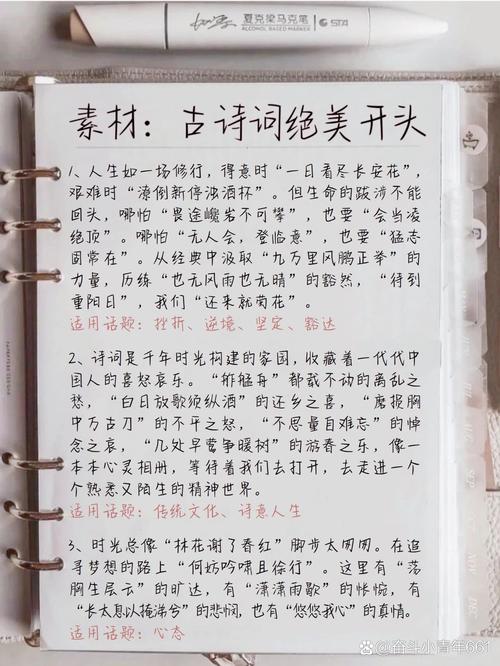 夏克梁马克笔
ALCOHOL BASED MARKER
STA
素材：古诗词绝美开头
1、人生如一场修行，得意时“一日看尽长安花”，
艰难时“潦倒新停浊酒杯”。但生命的跋涉不能
回头，哪怕“畏途巉岩不可攀”，也要“会当凌
绝顶”。哪怕“无人会，登临意”，也要“猛志
固常在”。从经典中汲取“九万里风鹏正举”的
力量，历练“也无风雨也无晴”的豁然，“待到
重阳日”，我们“还来就菊花”。
适用话题：挫折、逆境、坚定、豁达
2、诗词是千年时光构建的家园，收藏着一代代中
国人的喜怒哀乐。“舴艋舟”都载不动的离乱之
愁，“白日放歌须纵酒”的还乡之喜，“磨损胸
中万古刀”的不平之怒，“不思量自难忘”的悼
念之哀，“几处早莺争暖树”的游春之乐，像一
本本心灵相册，等待着我们去打开，去走进一个
个熟悉又陌生的精神世界。
适用话题：传统文化、诗意人生
3、时光总像“林花谢了春红”脚步太匆匆。在追
寻梦想的路上“何妨吟啸且徐行”。这里有“荡
胸生层云”的旷达，有“潇潇雨歇”的怅惋，有
“长太息以掩涕兮”的悲悯，也有“悠悠我心”的真情。
适用话题：心态
@奋斗小青年661